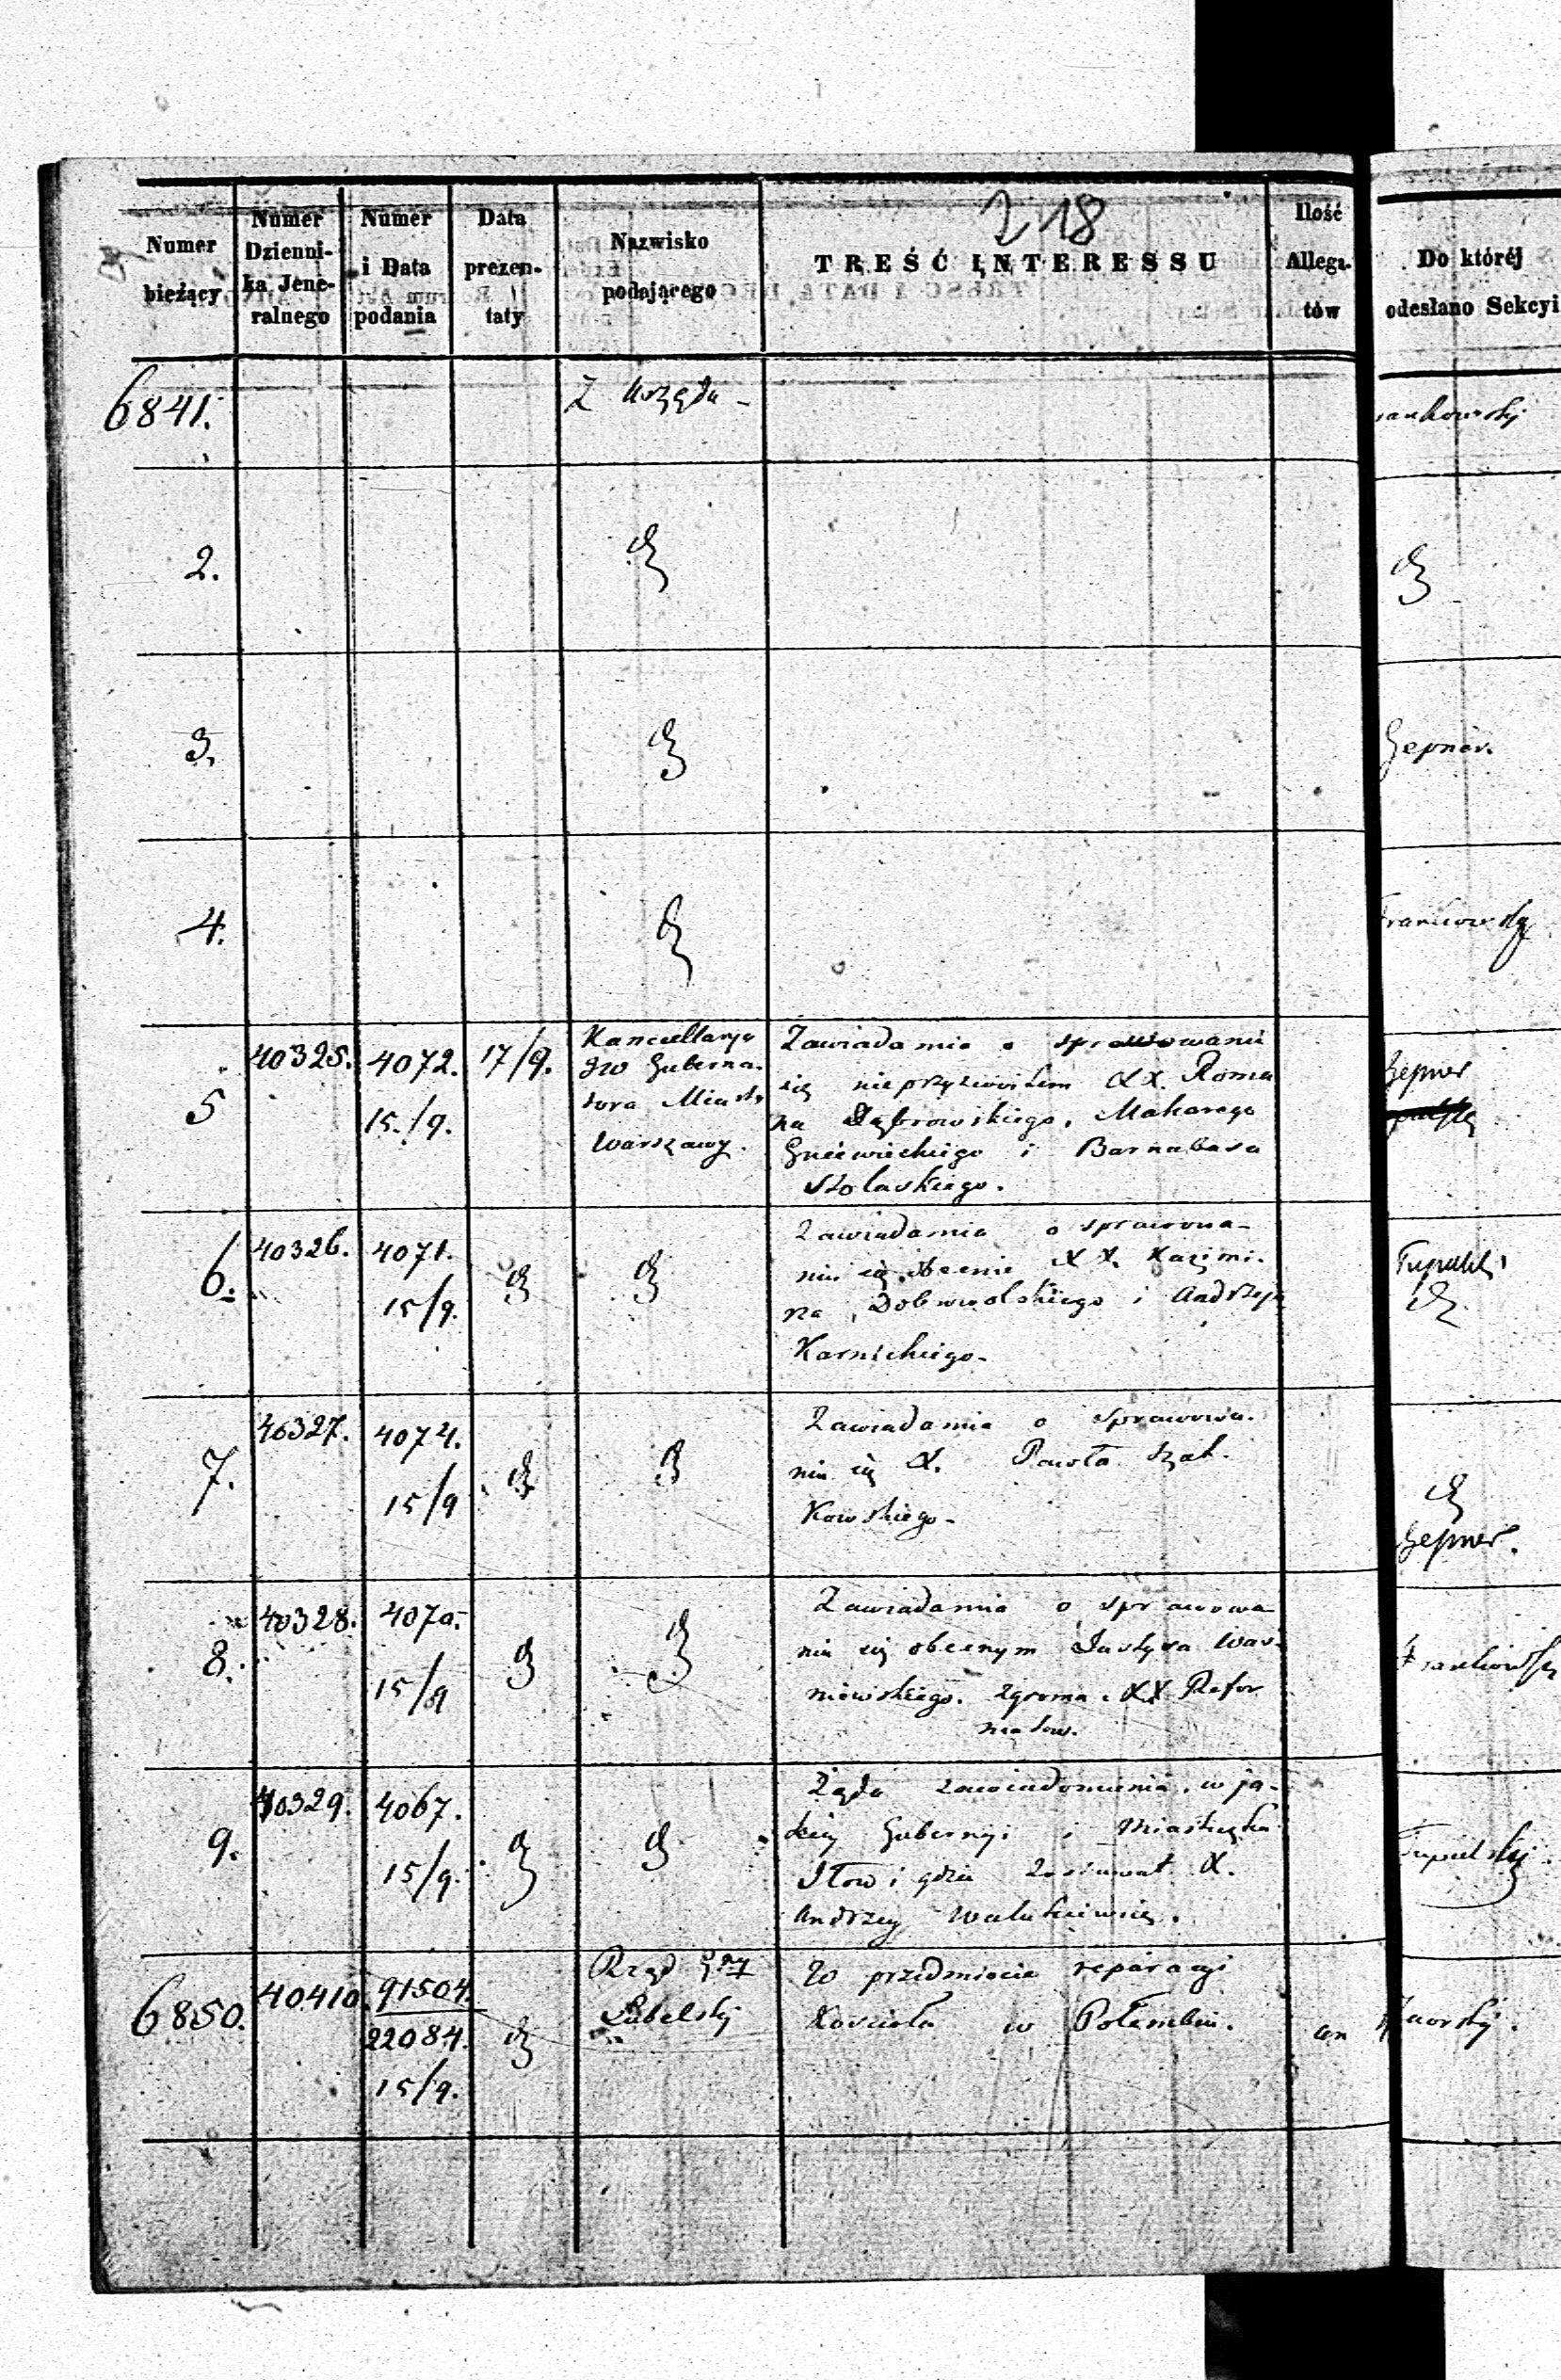 218
Numer
bieżący
Numer
Dzienni-
ka Jene-
ralnego
Numer
i Data
podania
Data
prezen-
taty
Nazwisko
podającego
TREŚĆ INTERESSU
Ilość
Allega-
tów
Do któréj
odesłano Sekcyi
6841.
Z Urzędu -
2.
3.
Gepner.
4.
5
40325.
4072.
15./9.
17/9.
Kancellarya
Guberna-
tora Miasta
Warszawy.
Zawiadamia o sprawowaniu
się nieprzyzwoitem XX. Roma
na Dąbrowskiego, Makarego
i Barnabasa
Stolarskiego.
Gepner
6.
40326.
4071.
15/9.
Zawiadamia o sprawowa-
niu się obecnie XX. Kazimi-
rza Dobrowolskiego i Andrzeja
Karnickiego-
7.
40327.
4074.
15/9
Zawiadamia o sprawowa-
niu się X. Pawła Szat-
kowskiego-
Gepner.
8.
40328.
4070.
15/9
Zawiadamia o sprawowa
niu się obecnym Justyna Waś-
niewskiego. zgroma. XX Refor
matow.
9.
40329.
4067.
15/9.
Żąda zawiadomienia, w ja-
kiej Gubernyi i Miasteczko
Iłow i gdzie zostawał X.
Andrzej
6850.
40410
91504.
22084.
15/9.
Rząd
Lubelski
W przedmiocie reparacyi
Kościoła w